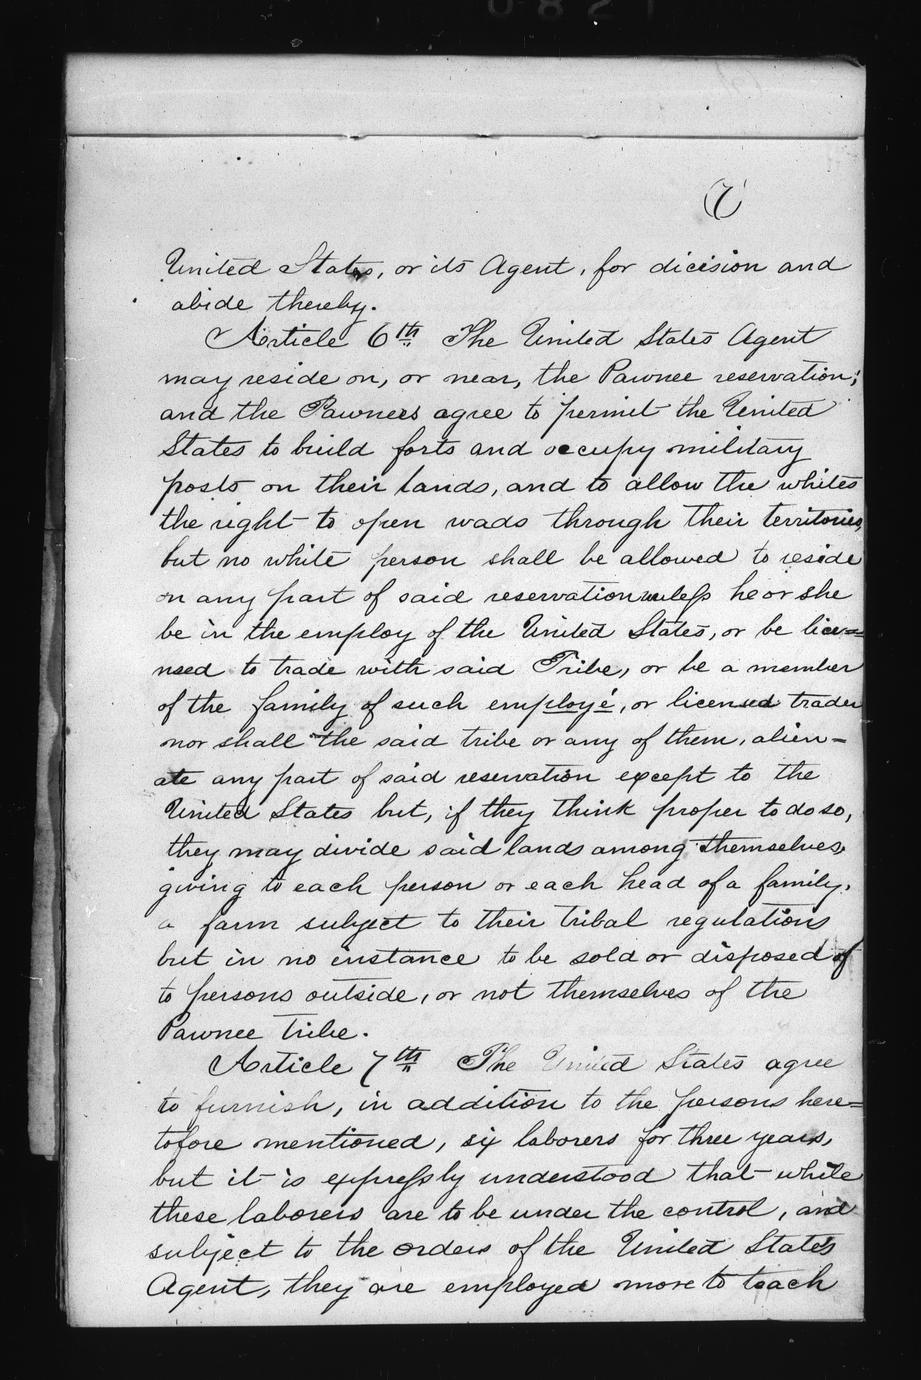 (7)
United States, or its Agent, for dicision and
abide thereby.
Article 6th The United States Agent
may reside on, or near, the Pawnee reservation;
and the Pawnees agree to permit the United
States to build forts and occupy military
posts on their lands, and to allow the whites
the right to open roads through their territories,
but no white person shall be allowed to reside
on any part of said reservation unless he or she
be in the employ of the United States, or be lice=
nsed to trade with said Tribe, or be a member
of the family of such employé, or licensed trader
nor shall the said tribe or any of them, alien=
ate any part of said reservation except to the
United States but, if they think proper to do so,
they may divide said lands among themselves,
giving to each person or each head of a family,
a farm subject to their tribal regulations
but in no instance to be sold or disposed of
to persons outside, or not themselves of the
Pawnee tribe.
Article 7th The United States agree
to furnish, in addition to the persons here=
tofore mentioned, six laborers for three years,
but it is expressly understood that while
these laborers are to be under the control, and
subject to the orders of the United States
Agent, they are employed more to teach